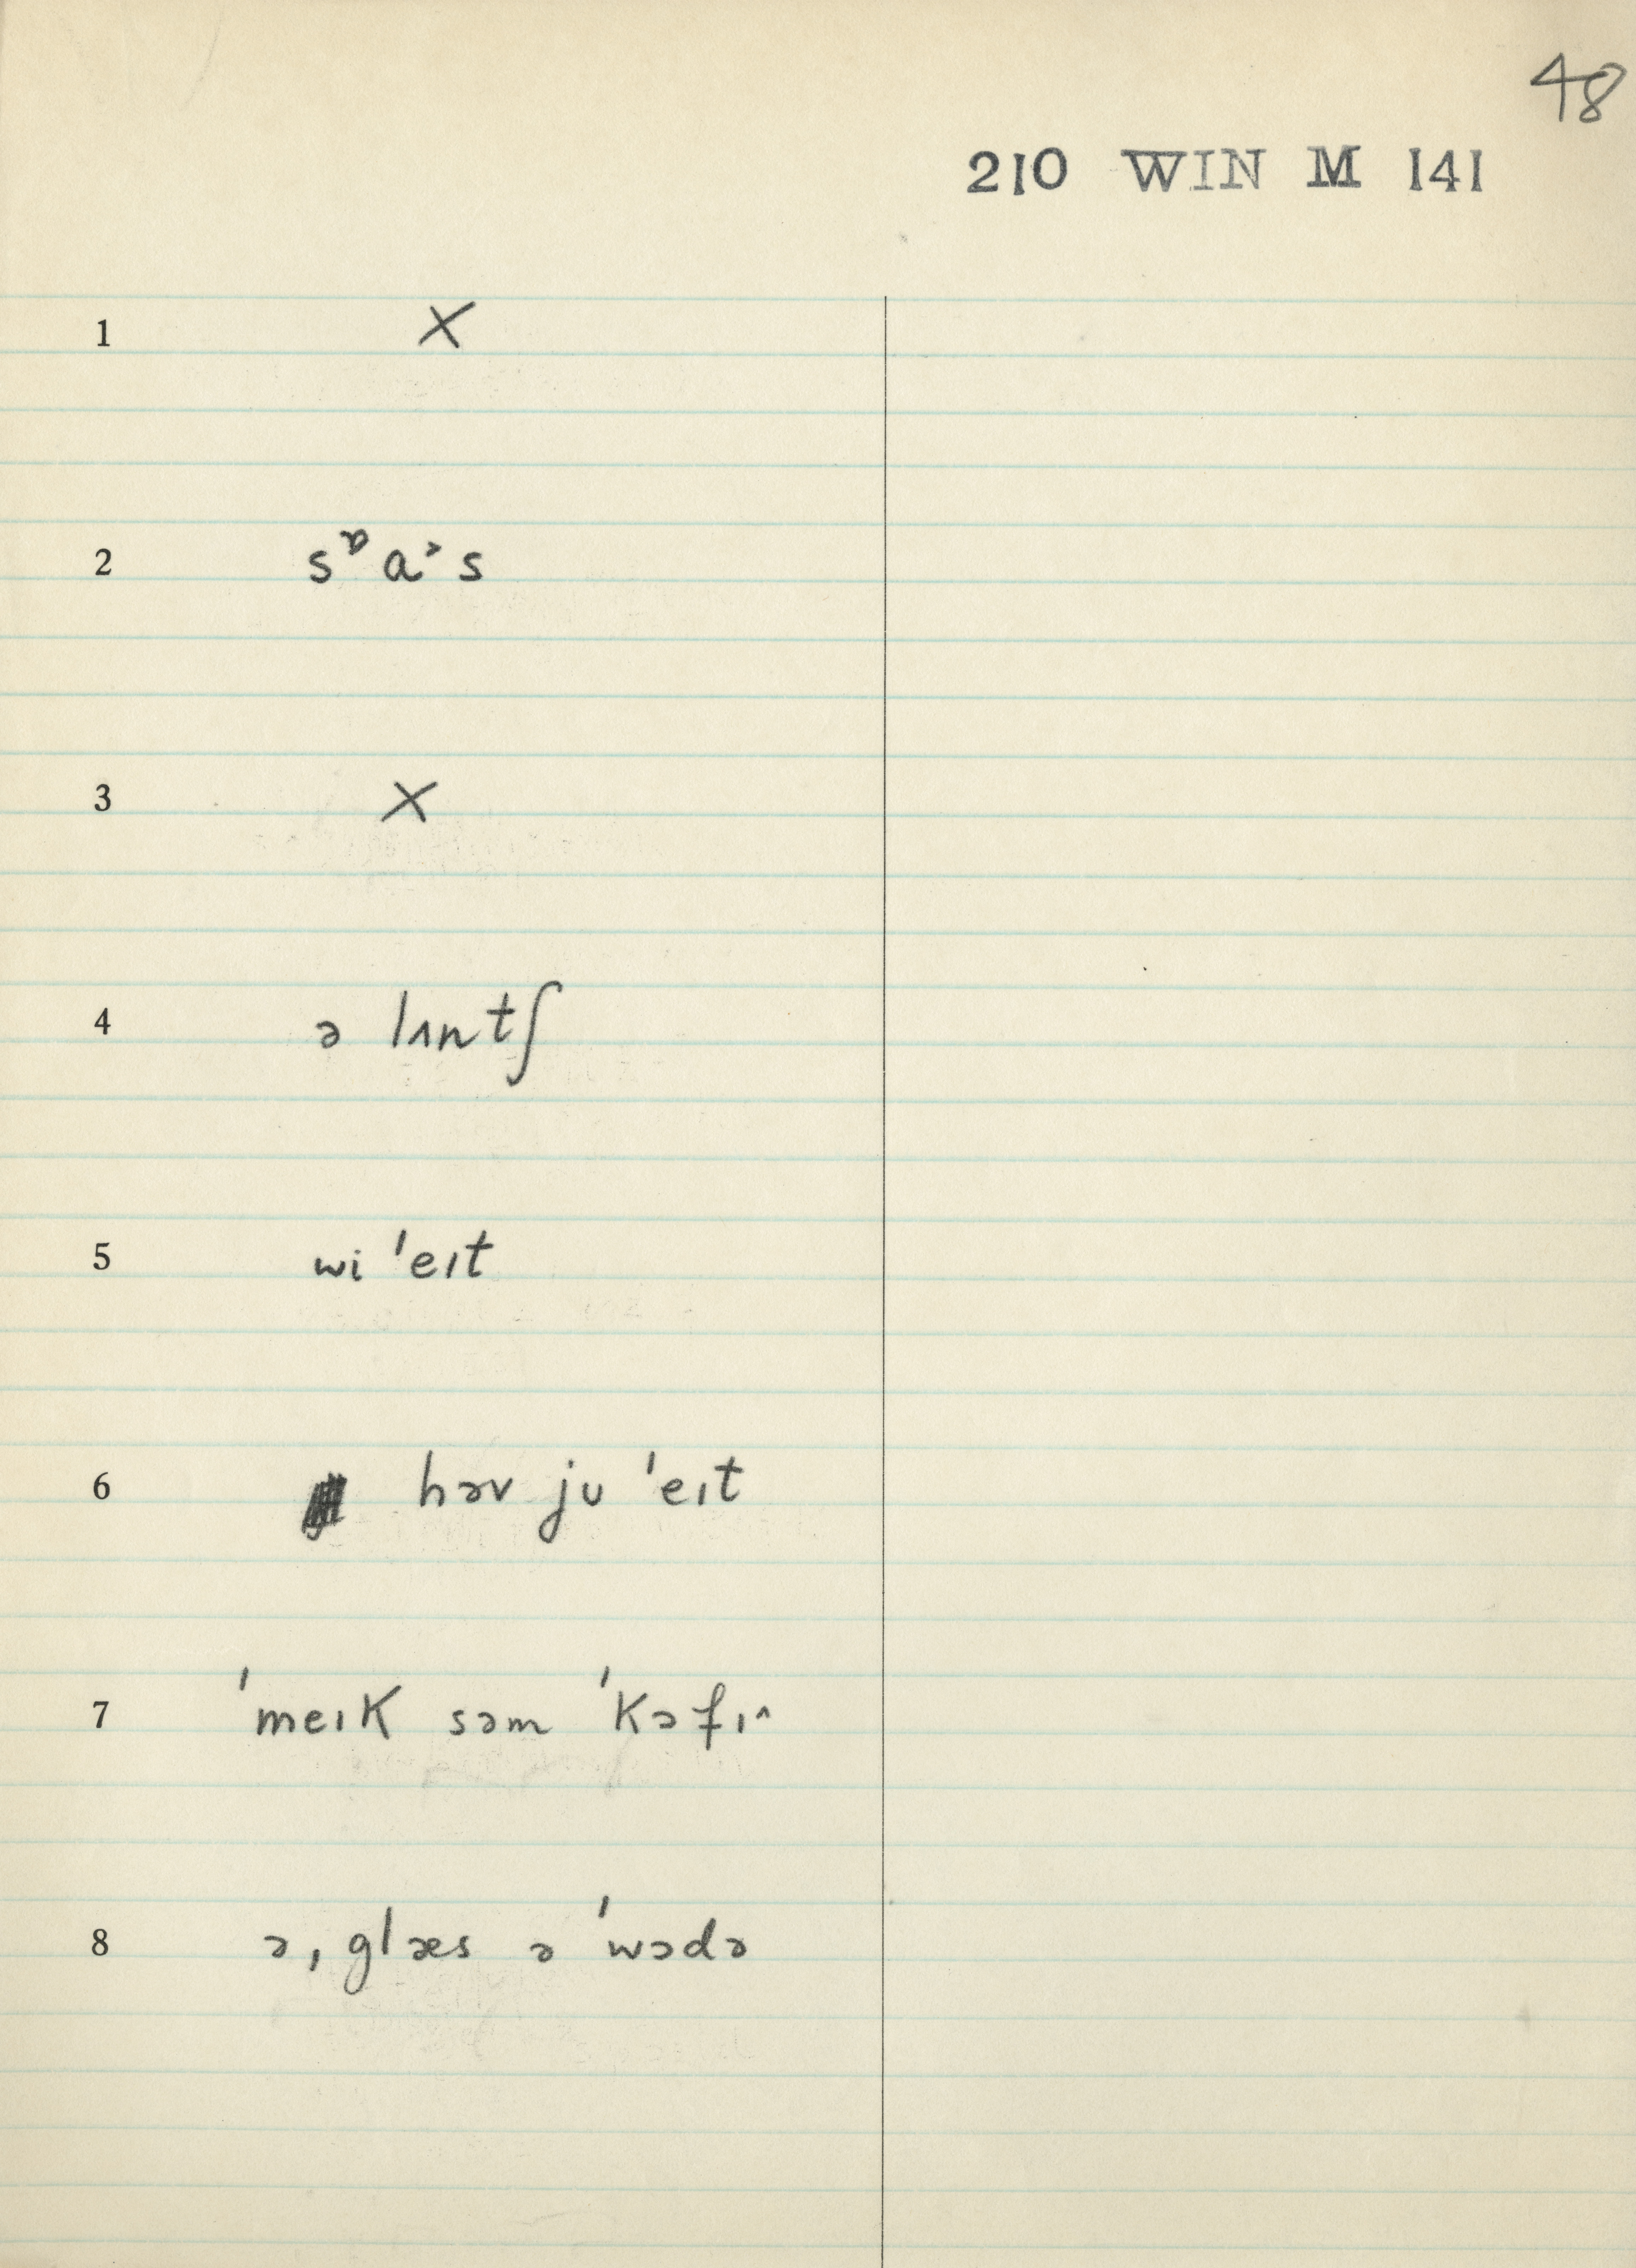 48
210 WIN M 141
1 X
2 sᶛa˃s
3 X
4 ə lʌntʃ
5 wi ˈeɪt
6 həv ju ˈeɪt
7 ˈmeɪk səm ˈkɔfɪ^
8 ə ˌglæs ə ˈwɔdə